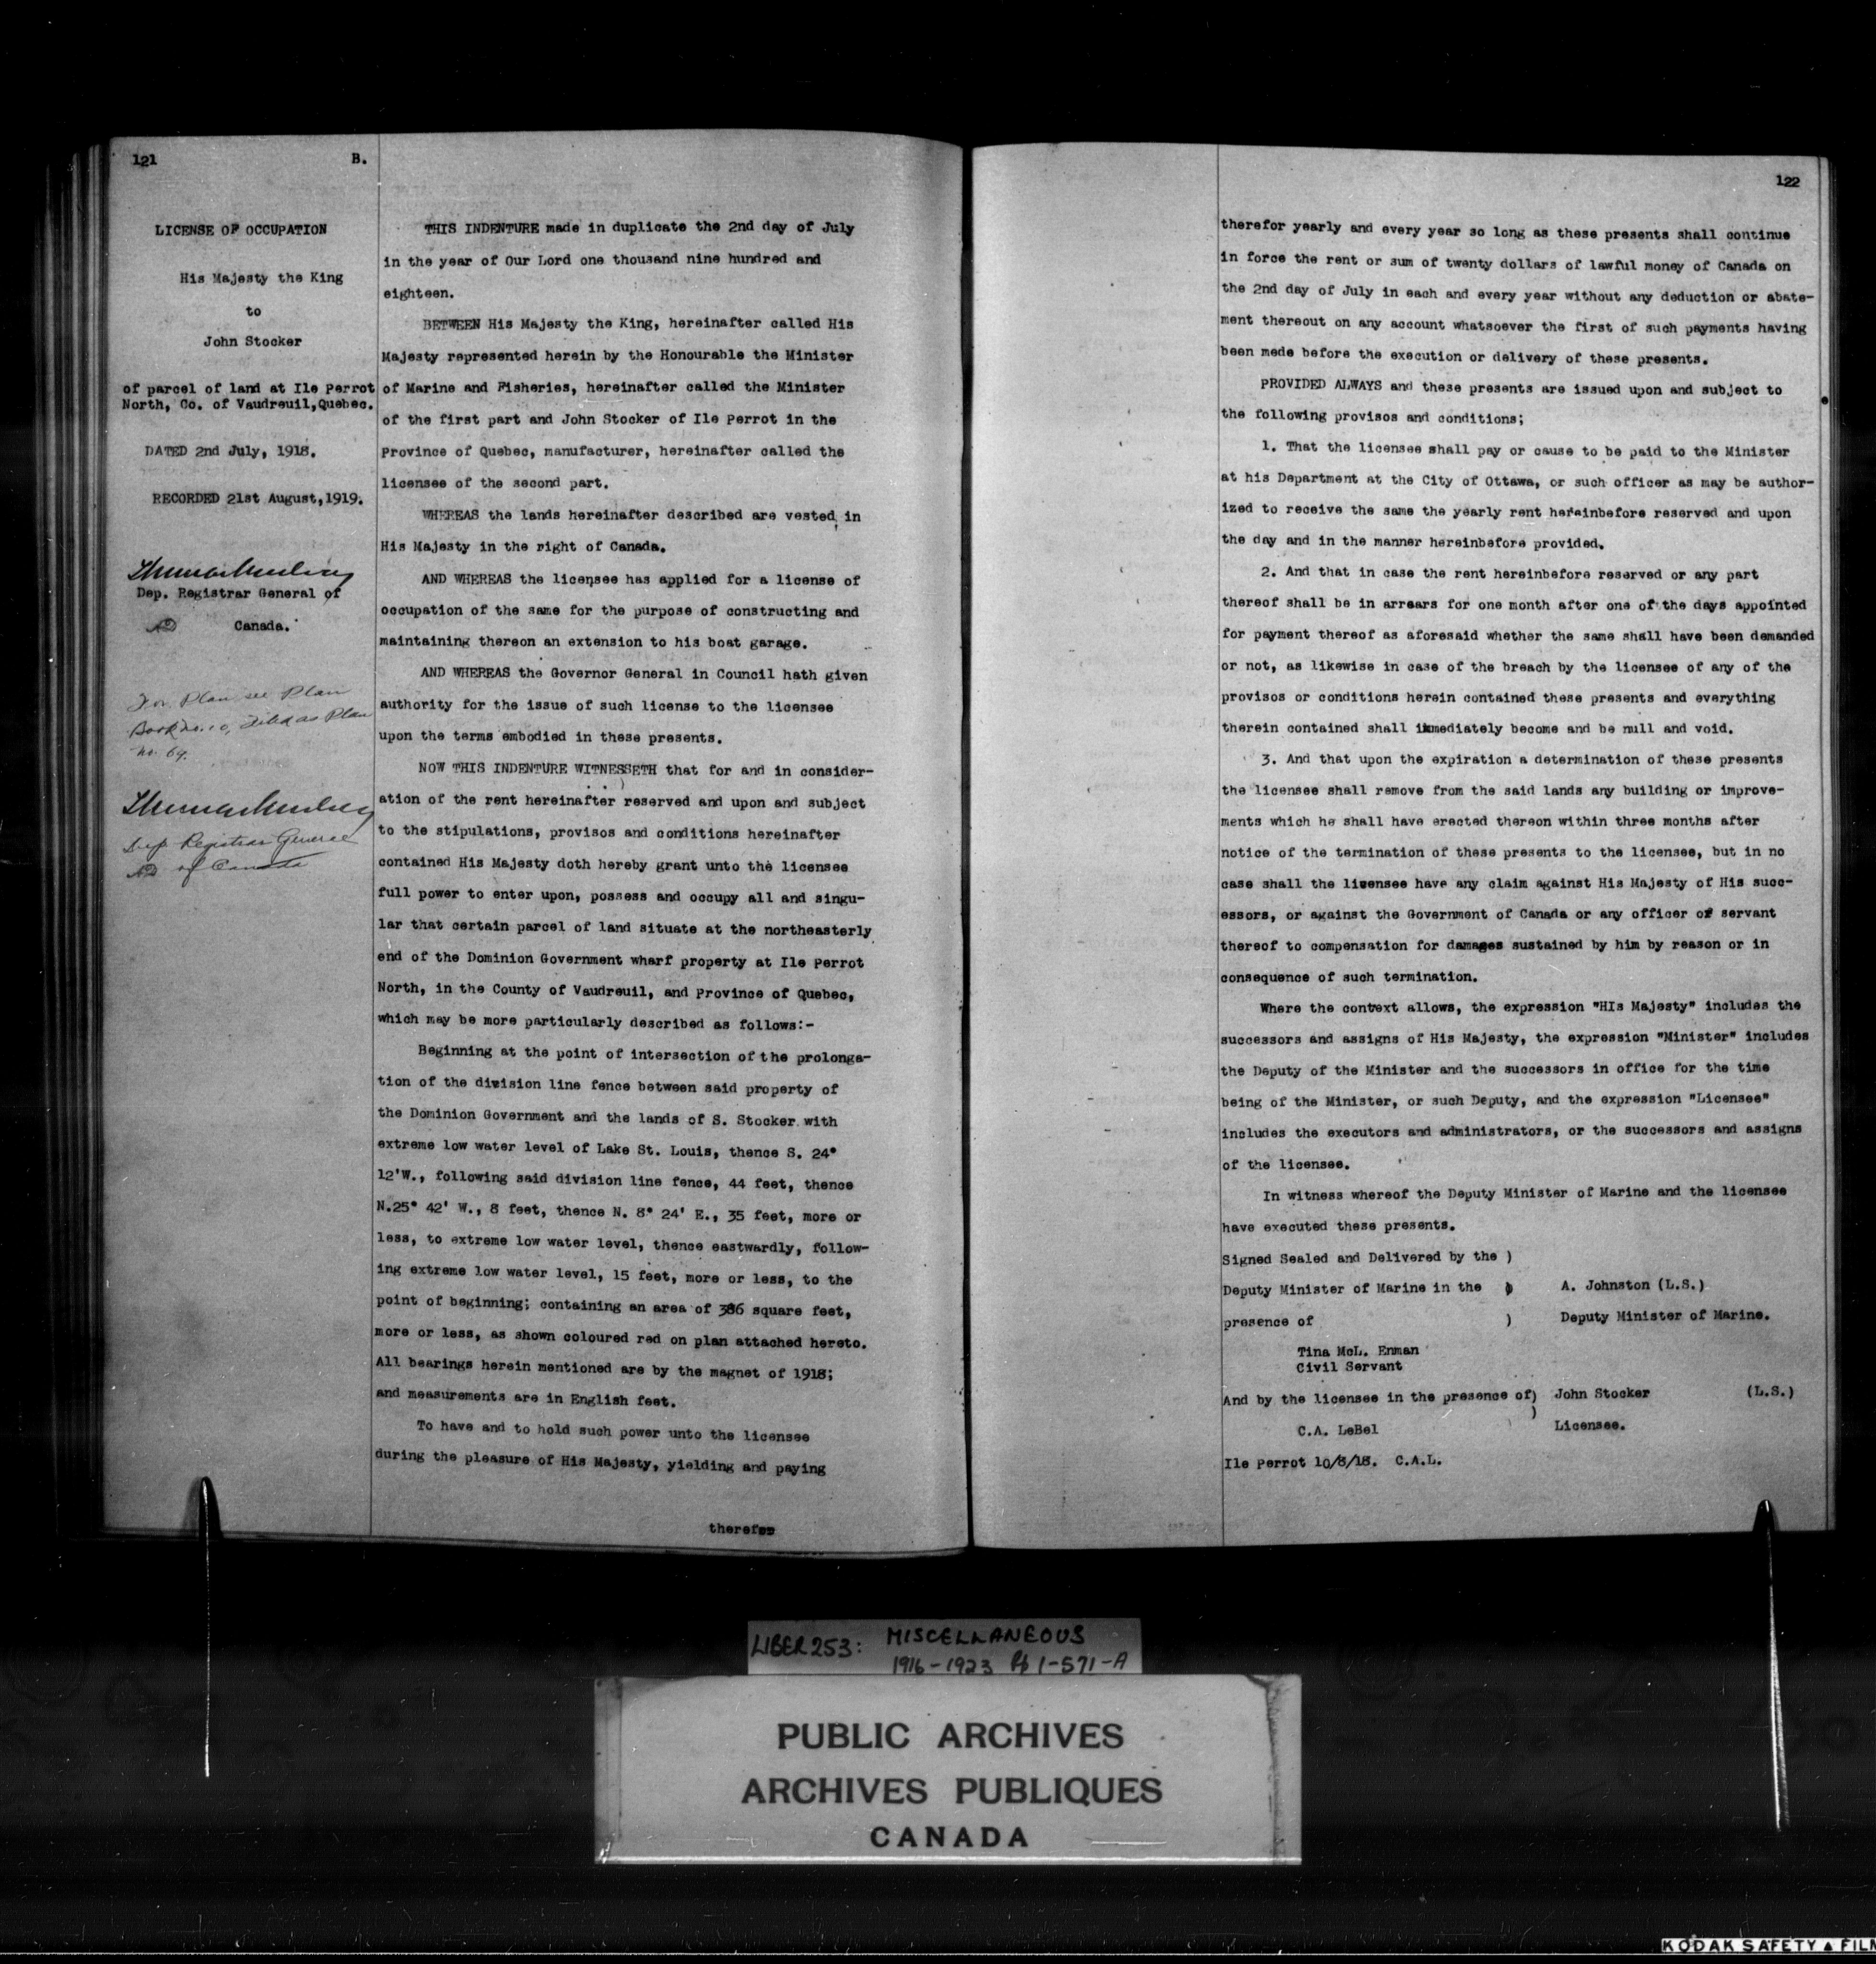 121 B.
LICENSE OF OCCUPATION
His Majesty the King
to
John Stocker
of parcel of land at Ile Perrot
North, Co. of Vaudreuil,Quebec.
DATED 2nd July, 1918.
RECORDED 21st August,1919.
Dep. Registrar General of
Canada.
For Plan see Plan
Book no. 10, Filed as Plan
no. 69.
Dep Registrar General
of Canada
THIS INDENTURE made in duplicate the 2nd day of July
in the year of Our Lord one thousand nine hundred and
eighteen.
BETWEEN His Majesty the King, hereinafter called His
Majesty represented herein by the Honourable the Minister
of Marine and Fisheries, hereinafter called the Minister
of the first part and John Stocker of Ile Perrot in the
Province of Quebec, manufacturer, hereinafter called the
licensee of the second part.
WHEREAS the lands hereinafter described are vested in
His Majesty in the right of Canada.
AND WHEREAS the licensee has applied for a license of
occupation of the same for the purpose of constructing and
maintaining thereon an extension to his boat garage.
AND WHEREAS the Governor General in Council hath given
authority for the issue of such license to the licensee
upon the terms embodied in these presents.
NOW THIS INDENTURE WITNESSETH that for and in consider-
ation of the rent hereinafter reserved and upon and subject
to the stipulations, provisos and conditions hereinafter
contained His Majesty doth hereby grant unto the licensee
full power to enter upon, possess and occupy all and singu-
lar that certain parcel of land situate at the northeasterly
end of the Dominion Government wharf property at Ile Perrot
North, in the County of Vaudreuil, and Province of Quebec,
which may be more particularly described as follows:-
Beginning at the point of intersection of the prolonga-
tion of the division line fence between said property of
the Dominion Government and the lands of S. Stocker with
extreme low water level of Lake St. Louis, thence S. 24°
12'W., following said division line fence, 44 feet, thence
N.25° 42' W., 8 feet, thence N. 8° 24' E., 35 feet, more or
less, to extreme low water level, thence eastwardly, follow-
ing extreme low water level, 15 feet, more or less, to the
point of beginning; containing an area of 386 square feet,
more or less, as shown coloured red on plan attached hereto.
All bearings herein mentioned are by the magnet of 1918;
and measurements are in English feet.
To have and to hold such power unto the licensee
during the pleasure of His Majesty, yielding and paying
therefor
122
therefor yearly and every year so long as these presents shall continue
in force the rent or sum of twenty dollars of lawful money of Canada on
the 2nd day of July in each and every year without any deduction or abate-
ment thereout on any account whatsoever the first of such payments having
been mede before the execution or delivery of these presents.
PROVIDED ALWAYS and these presents are issued upon and subject to
the following provisos and conditions;
1. That the licensee shall pay or cause to be paid to the Minister
at his Department at the City of Ottawa, or such officer as may be author-
ized to receive the same the yearly rent hereinbefore reserved and upon
the day and in the manner hereinbefore provided.
2. And that in case the rent hereinbefore reserved or any part
thereof shall be in arrears for one month after one of the days appointed
for payment thereof as aforesaid whether the same shall have been demanded
or not, as likewise in case of the breach by the licensee of any of the
provisos or conditions herein contained these presents and everything
therein contained shall immediately become and be null and void.
3. And that upon the expiration a determination of these presents
the licensee shall remove from the said lands any building or improve-
ments which he shall have erected thereon within three months after
notice of the termination of these presents to the licensee, but in no
case shall the livensee have any claim against His Majesty of His succ-
essors, or against the Government of Canada or any officer of servant
thereof to compensation for damages sustained by him by reason or in
consequence of such termination.
Where the context allows, the expression "HIs Majesty" includes the
successors and assigns of His Majesty, the expression "Minister" includes
the Deputy of the Minister and the successors in office for the time
being of the Minister, or such Deputy, and the expression "Licensee"
includes the executors and administrators, or the successors and assigns
of the licensee.
In witness whereof the Deputy Minister of Marine and the licensee
have executed these presents.
Signed Sealed and Delivered by the )
Deputy Minister of Marine in the ) A. Johnston (L.S.)
presence of ) Deputy Minister of Marine.
Tina McL. Enman
Civil Servant
And by the licensee in the presence of) John Stocker (L.S.)
)
C.A. LeBel Licensee.
Ile Perrot 10/8/18. C.A.L.
LIBER 253: MISCELLANEOUS
1916-1923 Pp 1-571-A
PUBLIC ARCHIVES
ARCHIVES PUBLIQUES
CANADA
KODAK SAFETY ▲ FILM